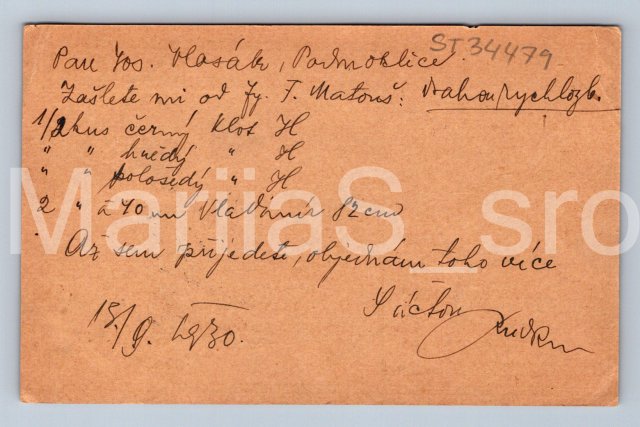 ST 34479
Pan Jos. Vlasák, Podmoklice.
Zašlete mi od fy. T. Matouš: drahou rychlozb.
1/2 kus černý klot H
" " hnědý " H
" " pološedý " H
2 " á 40 m Vladimír 82 cm
Až sem přijedete, objednám toho více
S úctou
15./9. 1930.
MarijaS_sro